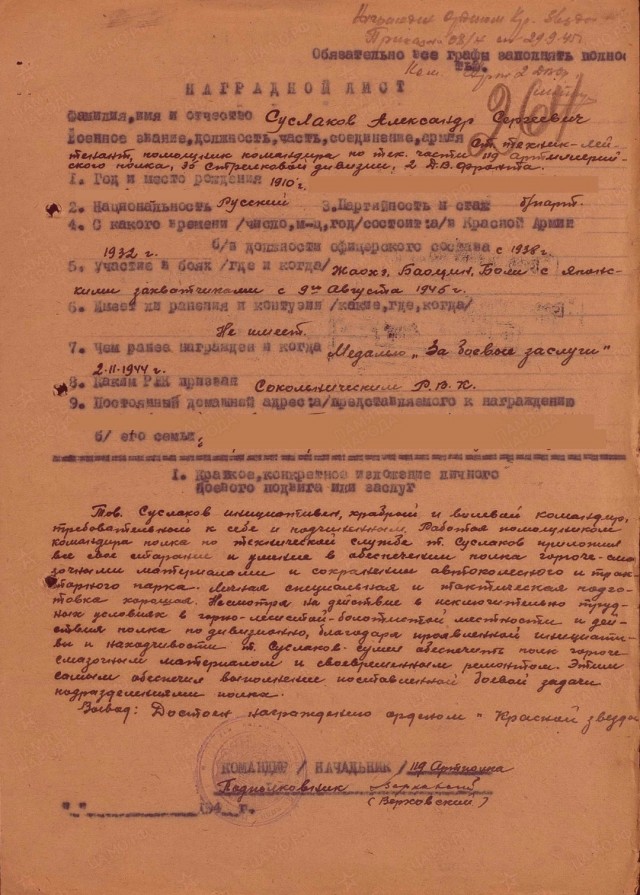 Награжден орденом Кр. Звезды
Приказ № 08/н от 29.9.45г.
Обязательно все графы заполнять полнос
тью.
НАГРАДНОЙ ЛИСТ
Фамилия, имя и отчество Суслаков Александр Сергеевич
Военное звание, должность, часть, соединение, армия Ст. техник-лей-
тенант, помощник командира по тех. части 119 Артиллерий-
ского полка, 35 Стрелковой дивизии, 2 Д.В. Фронта.
1. Год и место рождения 1910 г.
2. Национальность Русский 3. Партийность и стаж б/парт.
4. С какого времени /число, м-ц, год/ состоит: а/в Красной Армии
1932 г. б/в должности офицерского состава с 1938 г.
5. Участие в боях /где и когда/ Жаохэ, Баоцин, Боли с Япон-
скими захватчиками с 9го Августа 1945 г.
6. Имеет ли ранения и контузии /какие, где, когда/
Не имеет
7. Чем ранее награжден и когда Медалью „За боевые заслуги"
2.11.1944 г.
8. Каким РВК призван Сокольническим Р.В.К.
9. Постоянный домашний адрес: а/представляемого к награждению
б/ его семьи:
1. Краткое, конкретное изложение личного
боевого подвига или заслуг
Тов. Суслаков инициативен, храбрый и волевой командир,
требовательный к себе и подчиненным. Работая помощником
командира полка по технической службе т. Суслаков приложил
все свое старание и умение в обеспечении полка горюче-сма
зочными материалами и сохранении автоколесного и трак
торного парка. Личная специальная и тактическая подго-
товка хорошая. Несмотря на действие в исключительно труд-
ных условиях в горно-лесистой-болотистой местности и дей-
ствия полка по дивизионно, благодаря проявленной инициати-
вы и находчивости т. Суслаков сумел обеспечить полк горюче
смазочным материалом и своевременным ремонтом. Этим
самым обеспечил выполнение поставленной боевой задачи
подразделениями полка.
Вывод: Достоен награждению орденом „Красной звезды
КОМАНДИР / НАЧАЛЬНИК / 119 Артполка
Подполковник Верховский
(Верховский)
" " 194 г.